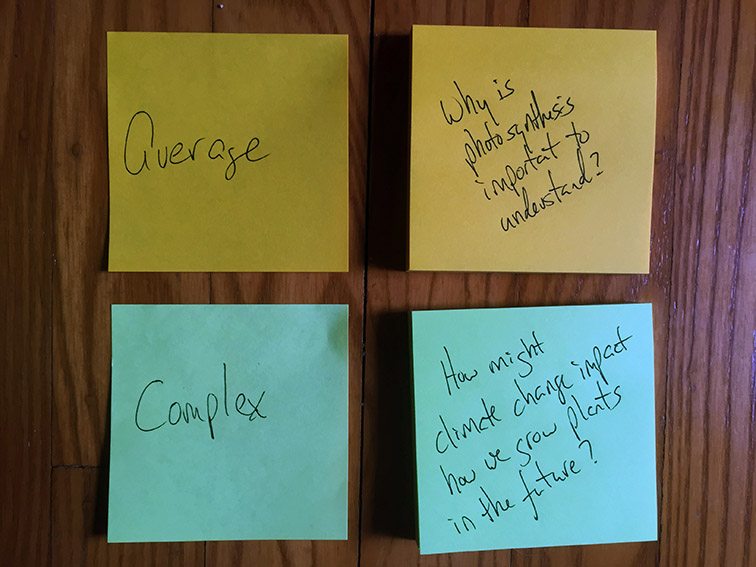 Average
Why is
photosynthesis
importat to
understand?
Complex
How might
climate change impact
how we grow plants
in the future?